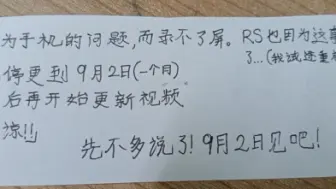 为手机的问题,而录不了屏。RS也因为这
了...(我试
停更到9月2日(一个月)
后再开始更新视频
谅!!
先不多说了!9月2日见吧!